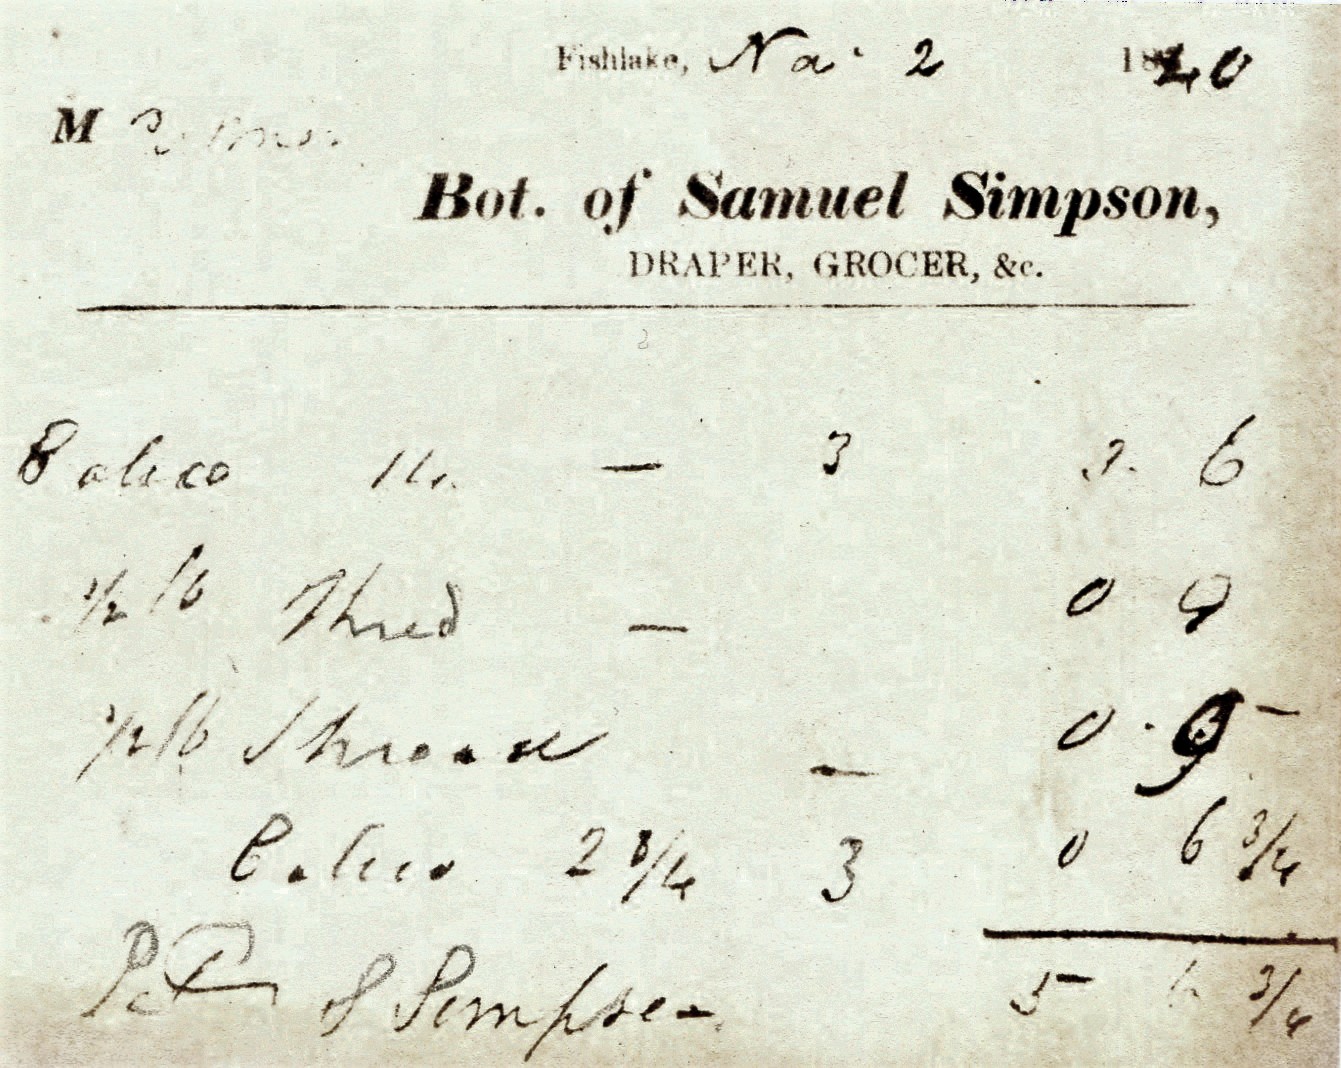 Fishlake, No. 2 1840
M
Bot. of Samuel Simpson,
DRAPER, GROCER, &c.
Calico 14 — 3 3. 6
1/2 lb Thred — 0 9
1/2 lb Thread — 0 · 9 -
Calico 2 3/4 3 0 6 3/4
S Simpson 5 6 3/4